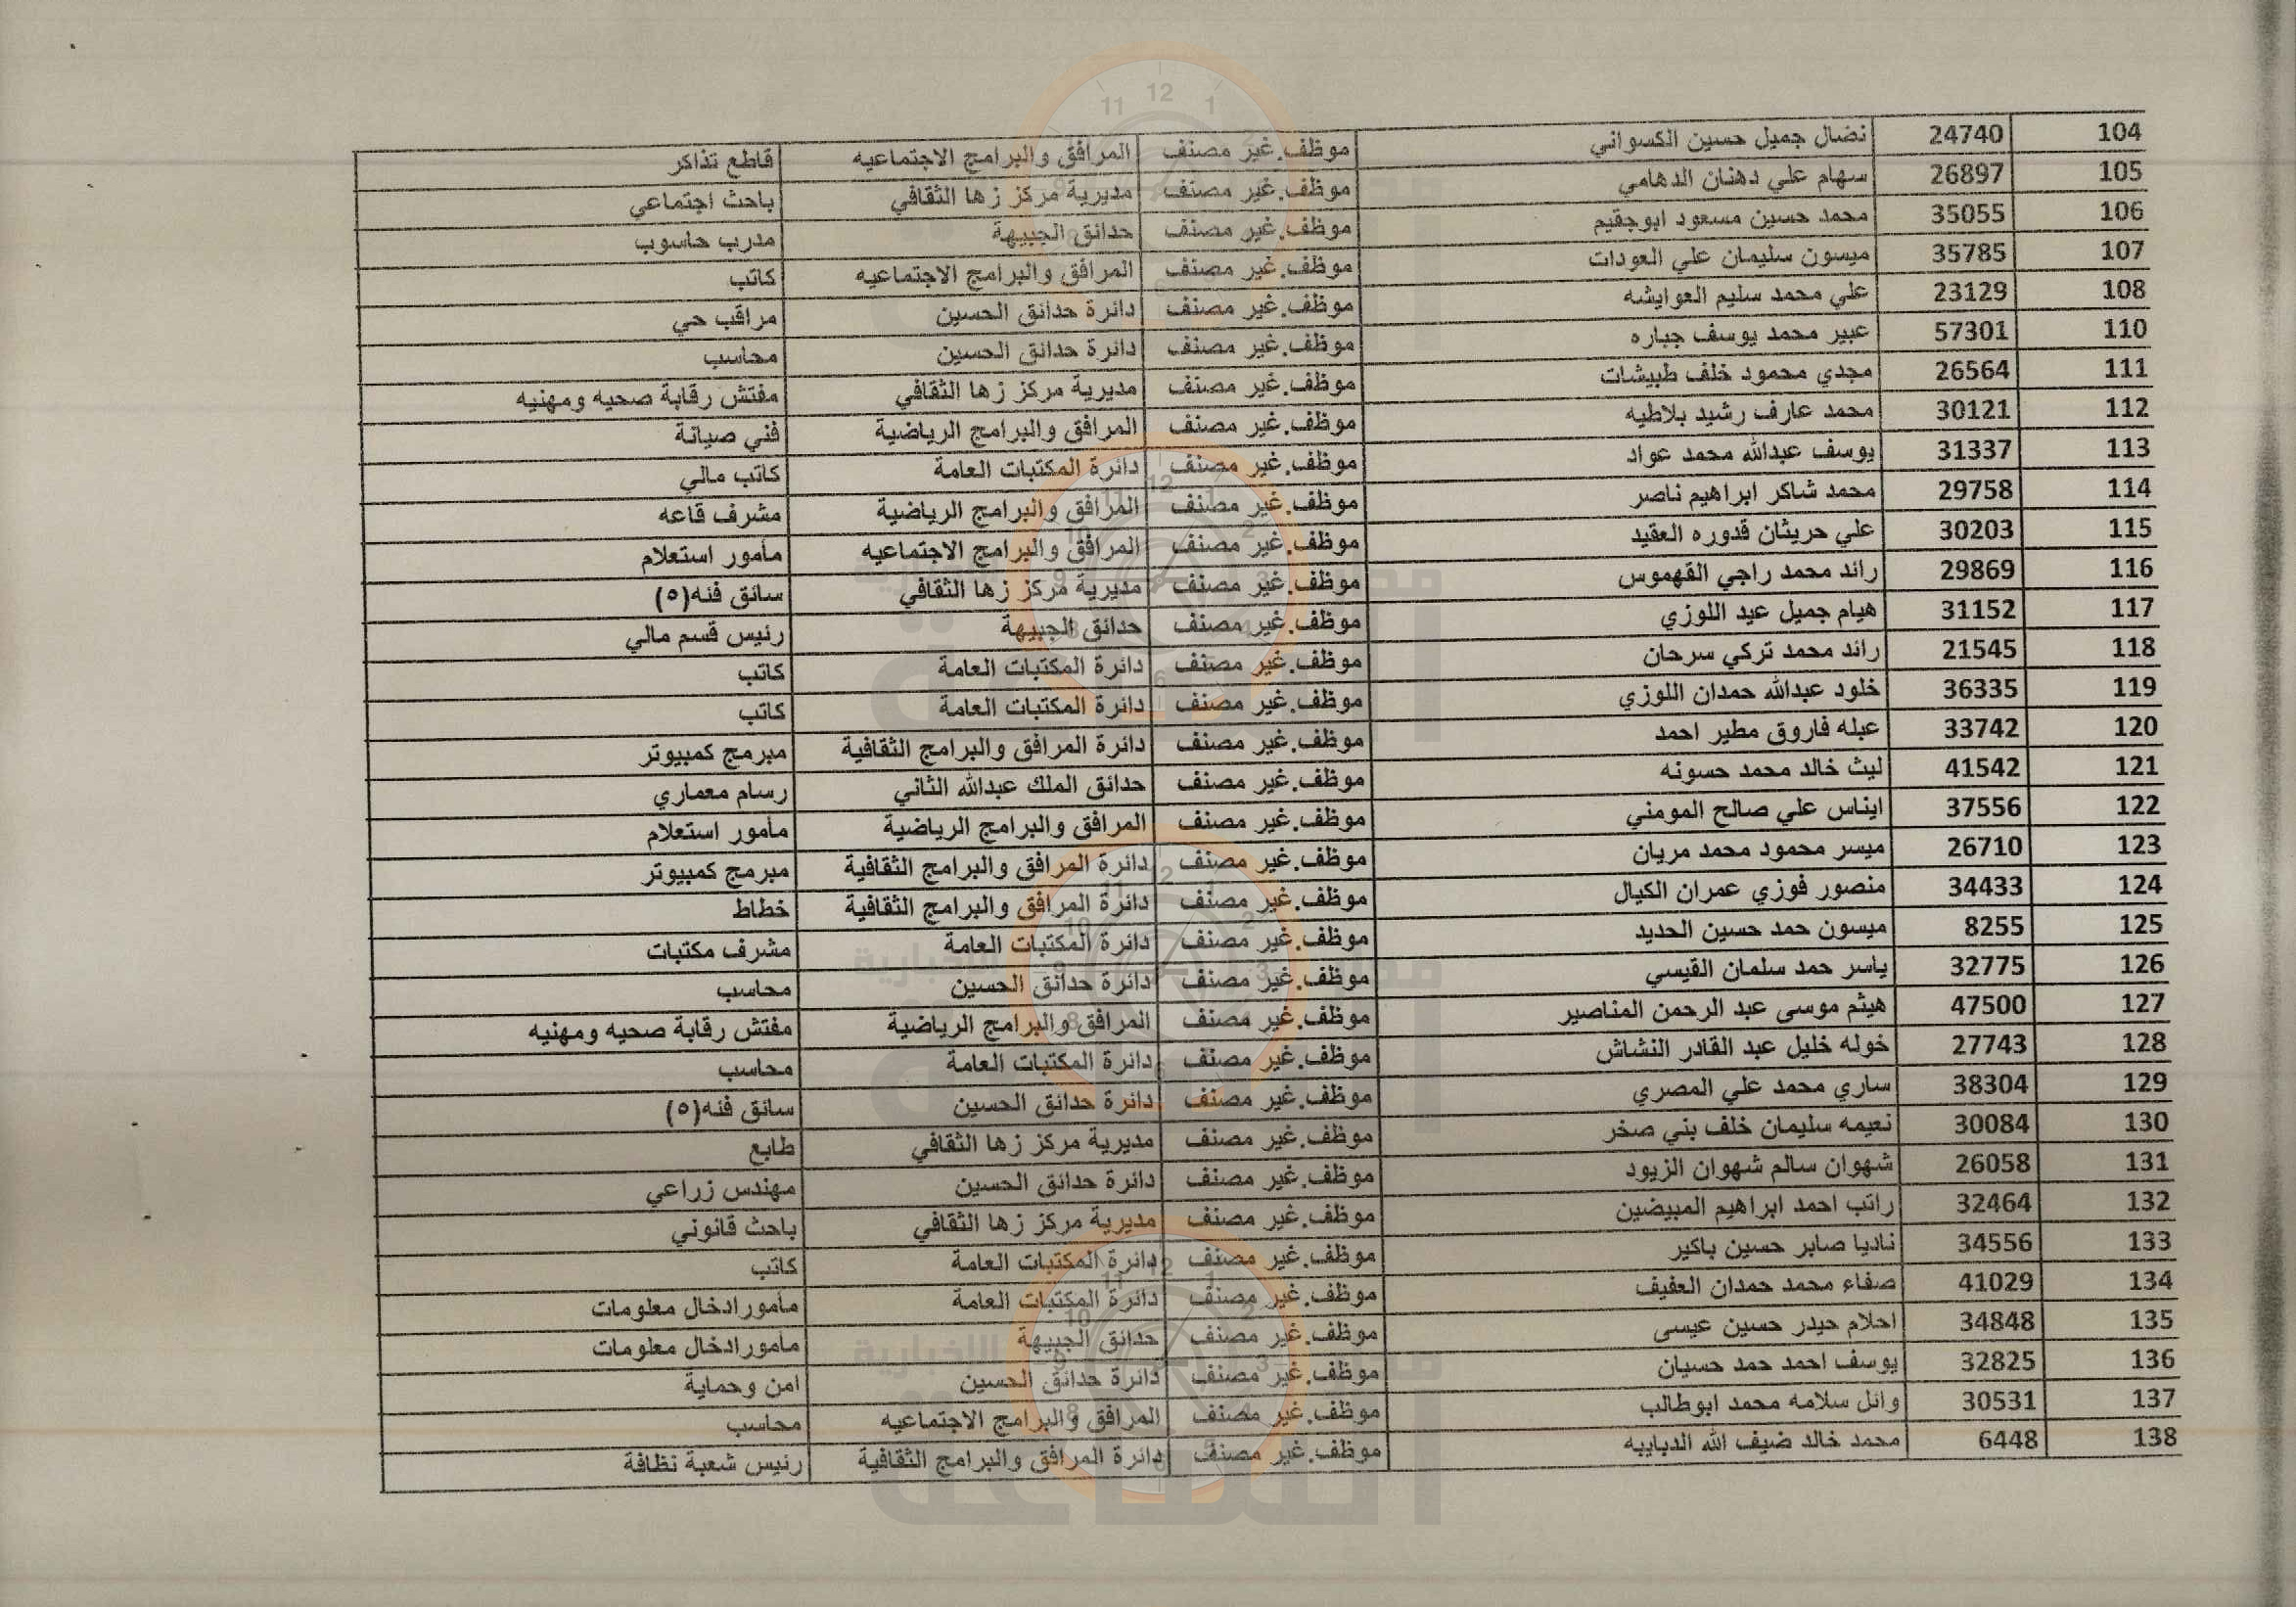 104 24740 نضال جميل حسين الكسواني موظف.غير مصنف المرافق والبرامج الاجتماعيه قاطع تذاكر
105 26897 سهام علي دهنان الدهامي موظف.غير مصنف مديرية مركز زها الثقافي باحث اجتماعي
106 35055 محمد حسين مسعود ابوجقيم موظف.غير مصنف حدائق الجبيهة مدرب حاسوب
107 35785 ميسون سليمان علي العودات موظف.غير مصنف المرافق والبرامج الاجتماعيه كاتب
108 23129 علي محمد سليم العوايشه موظف.غير مصنف دائرة حدائق الحسين مراقب حي
110 57301 عبير محمد يوسف جباره موظف.غير مصنف دائرة حدائق الحسين محاسب
111 26564 مجدي محمود خلف طبيشات موظف.غير مصنف مديرية مركز زها الثقافي مفتش رقابة صحيه ومهنيه
112 30121 محمد عارف رشيد بلاطيه موظف.غير مصنف المرافق والبرامج الرياضية فني صيانة
113 31337 يوسف عبدالله محمد عواد موظف.غير مصنف دائرة المكتبات العامة كاتب مالي
114 29758 محمد شاكر ابراهيم ناصر موظف.غير مصنف المرافق والبرامج الرياضية مشرف قاعه
115 30203 علي حريثان قدوره العقيد موظف.غير مصنف المرافق والبرامج الاجتماعيه مأمور استعلام
116 29869 رائد محمد راجي القهموس موظف.غير مصنف مديرية مركز زها الثقافي سائق فئه(٥)
117 31152 هيام جميل عيد اللوزي موظف.غير مصنف حدائق الجبيهة رئيس قسم مالي
118 21545 رائد محمد تركي سرحان موظف.غير مصنف دائرة المكتبات العامة كاتب
119 36335 خلود عبدالله حمدان اللوزي موظف.غير مصنف دائرة المكتبات العامة كاتب
120 33742 عبله فاروق مطير احمد موظف.غير مصنف دائرة المرافق والبرامج الثقافية مبرمج كمبيوتر
121 41542 ليث خالد محمد حسونه موظف.غير مصنف حدائق الملك عبدالله الثاني رسام معماري
122 37556 ايناس علي صالح المومني موظف.غير مصنف المرافق والبرامج الرياضية مأمور استعلام
123 26710 ميسر محمود محمد مريان موظف.غير مصنف دائرة المرافق والبرامج الثقافية مبرمج كمبيوتر
124 34433 منصور فوزي عمران الكيال موظف.غير مصنف دائرة المرافق والبرامج الثقافية خطاط
125 8255 ميسون حمد حسين الحديد موظف.غير مصنف دائرة المكتبات العامة مشرف مكتبات
126 32775 ياسر حمد سلمان القيسي موظف.غير مصنف دائرة حدائق الحسين محاسب
127 47500 هيثم موسى عبد الرحمن المناصير موظف.غير مصنف المرافق والبرامج الرياضية مفتش رقابة صحيه ومهنيه
128 27743 خوله خليل عبد القادر النشاش موظف.غير مصنف دائرة المكتبات العامة محاسب
129 38304 ساري محمد علي المصري موظف.غير مصنف دائرة حدائق الحسين سائق فئه(٥)
130 30084 نعيمه سليمان خلف بني صخر موظف.غير مصنف مديرية مركز زها الثقافي طابع
131 26058 شهوان سالم شهوان الزيود موظف.غير مصنف دائرة حدائق الحسين مهندس زراعي
132 32464 راتب احمد ابراهيم المبيضين موظف.غير مصنف مديرية مركز زها الثقافي باحث قانوني
133 34556 ناديا صابر حسين باكير موظف.غير مصنف دائرة المكتبات العامة كاتب
134 41029 صفاء محمد حمدان العفيف موظف.غير مصنف دائرة المكتبات العامة مأمورادخال معلومات
135 34848 احلام حيدر حسين عيسى موظف.غير مصنف حدائق الجبيهة مأمورادخال معلومات
136 32825 يوسف احمد حمد حسيان موظف.غير مصنف دائرة حدائق الحسين امن وحماية
137 30531 وائل سلامه محمد ابوطالب موظف.غير مصنف المرافق والبرامج الاجتماعيه محاسب
138 6448 محمد خالد ضيف الله الدبايبه موظف.غير مصنف دائرة المرافق والبرامج الثقافية رئيس شعبة نظافة